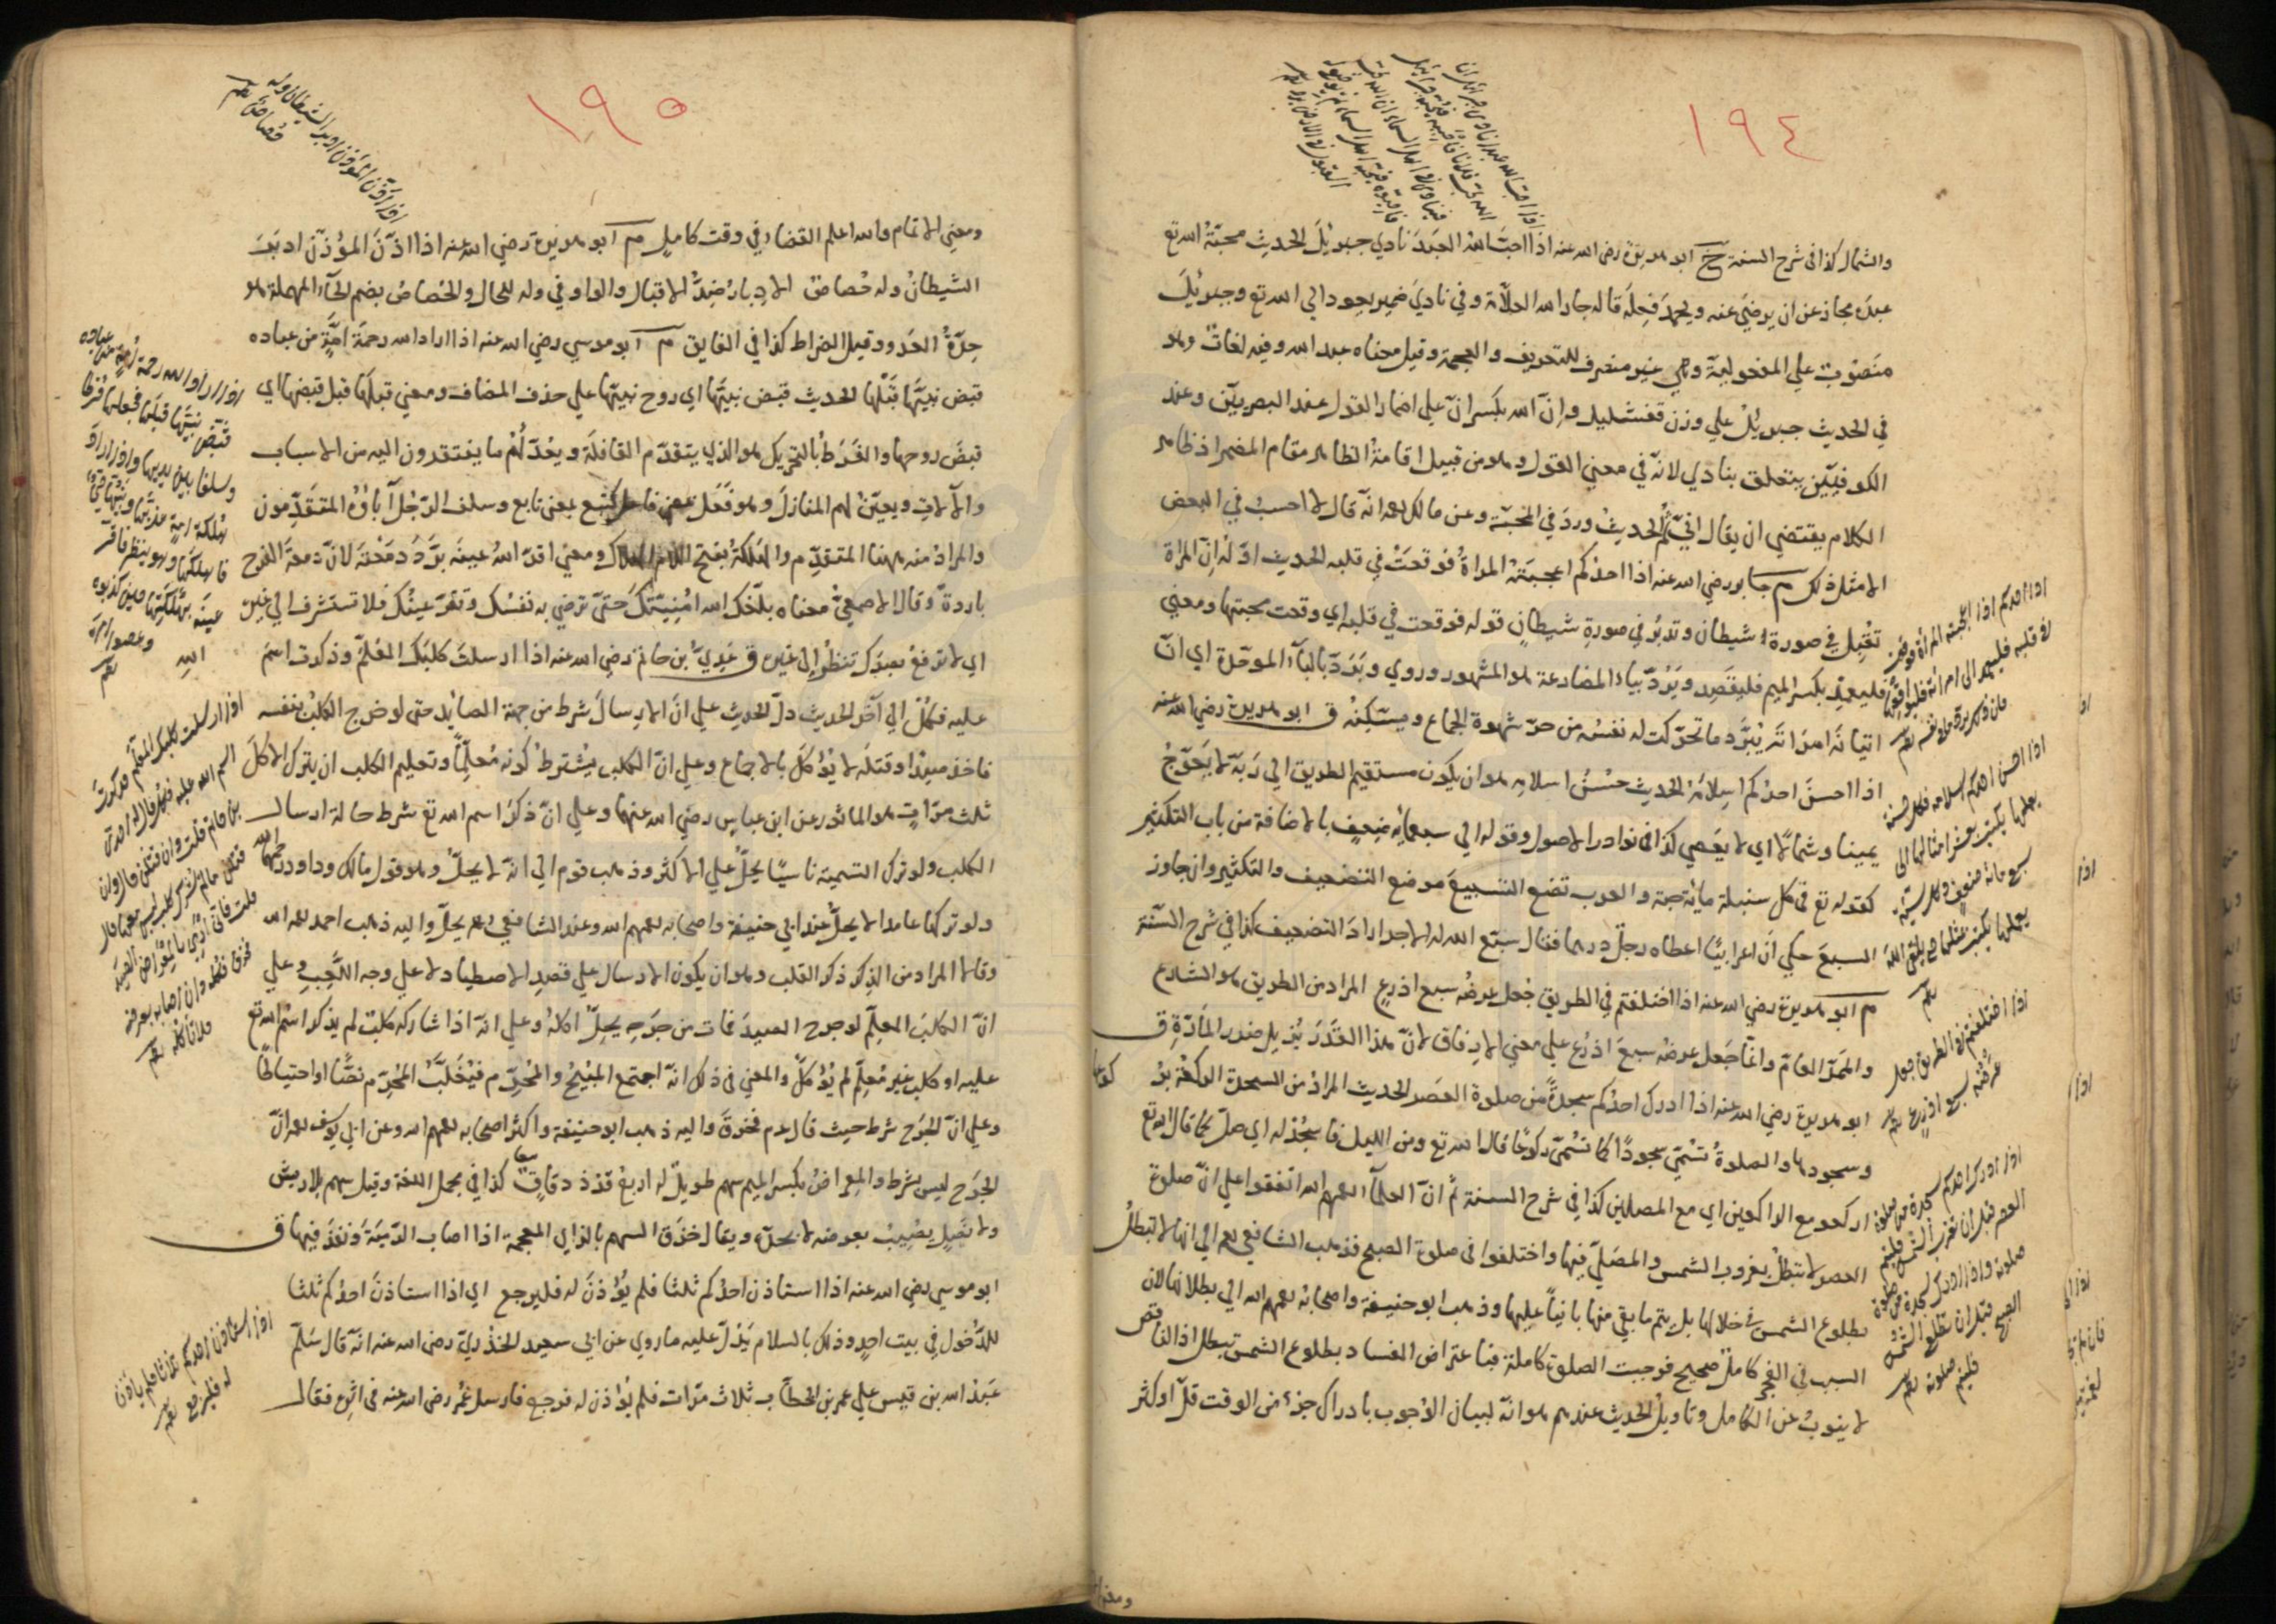 ١٩٤
والشمال كذا في شرح السنة خ ابو هريرة رضي الله عنه اذا احبّ الله العبدَ نادي جبريلَ الحديث محبّةُ الله تع
عبدَه مجاز عن ان يرضيَ عنه ويحمدَ فِعلَه قاله جار الله العلّامة وفي نادي ضمير يعود الي الله تع وجبريلَ
منصوب علي المفعولية وهي غير منصرف للتعريف والعجمة وقيل معناه عبد الله وفيه لغات وهو
في الحديث جبريل علي وزن قفشليل وانّ الله بكسر انّ علي اضمار القول عند البصريين وعند
الكوفيّين يتعلق بنادي لانّه في معني القول وهو من قبيل اقامة الظاهر مقام المضمر اذ ظاهر
الكلام يقتضي ان يقال انّي ثم الحديث وردَ في المحبّة وعن مالك رحمه انه قال لا احسب في البغض
الا مثل ذلك م جابر رضي الله عنه اذا احدكم اعجبته المراةُ فوقعَتْ في قلبه الحديث اوّله انّ المراة
تقبل في صورة شيطان وتدبر في صورة شيطان قوله فوقعت في قلبه اي وقعت محبتها ومعني
فليعمد بكسر الميم فليقصد ويَرُدّ بياء المضارعة هو المشهور وروي وبَرَدَ بالباء الموحّدة اي انّ
اتيانَه امراتَه يُبَرّد ما تحرّكت له نفسُه من حرّ شهوة الجماع ويسكّنه ق ابو هريرة رضي الله عنه
اذا احسنَ احدُكم اسلامَه الحديث حسنُ اسلامه هو ان يكون مستقيم الطريق الي ربّه لا يعوّج
يمينا وشمالا اي لا يعصي كذا في نوادر الاصول وقوله الي سبعمائة ضعف بالاضافة من باب التكثير
كقوله تع في كل سنبلة مائة حبة والعرب تضع التسبيع موضع التضعيف والتكثير وان جاوز
السبع حكي انّ اعرابيًّا اعطاه رجل درهما فقال سبّع الله له الاجر اراد التضعيف كذا في شرح السنّة
م ابو هريرة رضي الله عنه اذا اختلفتم في الطريق جُعل عرضُه سبع اذرع المراد من الطريق هو الشارع
والممرّ العامّ وانّما جعل عرضه سبعَ اذرُع علي معني الارفاق لانّ هذا القَدَرَ يُزيل ضرر المارّة ق
ابو هريرة رضي الله عنه اذا ادرك احدُكم سجدةً من صلوة العصر الحديث المراد من السجدة الركعة
وسجودها والصلوةُ تسمّي سجودًا كما تسمّي ركوعًا قال الله تع ومن الليل فاسجد له اي صلّ كما قال الله تع
اركعوا مع الراكعين اي مع المصلّين كذا في شرح السنة ثمّ انّ العلماء رحمهم الله اتفقوا علي انّ صلوة
العصر لا تبطل بغروب الشمس والمصلّي فيها واختلفوا في صلوة الصبح فذهب الشافعي رحمه الي انها لا تبطلُ
بطلوع الشمس في خلالها بل يتم ما بقي منها بانياً عليها وذهب ابو حنيفة واصحابه رحمهم الله الي بطلانها لان
السبب في الفجر كاملٌ صحيح فوجبت الصلوة كاملة فباعتراض الفساد بطلوع الشمس تبطل اذ الناقص
لا ينوب عن الكامل وتاويل الحديث عندهم هو انّه لبيان الوجوب بادراك جزء من الوقت قلّ او كثر
اذا احبّ الله عبدا نادي جبرائيل
اذا احدكم اذا اعجبته المرأة فوقعت
في قلبه فليعمد الي امرأته فليواقعها
فان ذلك يردّ ما في نفسه
اذا احسن احدكم اسلامه فكل حسنة
يعملها تكتب بعشر امثالها الي
سبع مائة ضعف وكل سيّئة
يعملها تكتب بمثلها حتي يلقي الله
اذا اختلفتم في الطريق جعل
عرضه سبع اذرع
اذا ادرك احدكم سجدة من صلوة
العصر قبل ان تغرب الشمس فليتم
صلوته واذا ادرك سجدة من صلوة
الصبح قبل ان تطلع الشمس
فليتم صلوته
١٩٥
ومعني الاتمام والله اعلم القضاء في وقت كامل م ابو هريرة رضي الله عنه اذا اذّنَ المؤذّن ادبَرَ
الشيطانُ وله حُصاصٌ الادبارُ ضدّ الاقبال والواو في وله للحال والحُصاصُ بضم الحاء المهملة هو
حِدّةُ العَدْو وقيل الضراط كذا في الفايق م ابو موسي رضي الله عنه اذا اراد الله رحمةَ امّةٍ من عباده
قبض نبيَّها قَبْلَها الحديث قبض نبيَّها اي روح نبيّها علي حذف المضاف ومعني قبلَها قبل قبضها اي
قبضَ روحها والفَرَطُ بالتحريك هو الذي يتقدّم القافلةَ ويُعدّ لهُم ما يفتقرون اليه من الاسباب
والآلات ويعيّن لهم المنازلَ وهو فَعَلٌ بمعني فاعل كتبع بمعني تابع وسلف الرّجُل آباؤُه المتقدّمون
والمرادُ منه ههنا المتقدّم والهَلَكةُ بفتح اللام الهلاك ومعني اقرّ اللهُ عينَه بَرَّدَ دمعتَه لانّ دمعةَ الفرح
باردة وقال الاصمعيّ معناه بلّغك الله اُمْنِيّتَكَ حتّي ترضي به نفسُك وتقرّ عينُك فلا تستشرف الي غيره
اي لا ترفعْ بصرَك تنظُرُ الي غيره ق عَدِيّ بن حاتم رضي الله عنه اذا ارسلتَ كلبَك المعَلَّم وذكرت اسمَ
عليه فكُلْ الي آخر الحديث دلّ الحديث علي انّ الارسالَ شرط من جهة الصائد حتي لو خرج الكلبُ بنفسه
فاخذ صيدًا وقتلَه لا يُؤكَلُ بالاجماع وعلي انّ الكلب يُشترطُ كونُه مُعلَّمًا وتعليم الكلب ان يترك الاكلَ
ثلث مرّاتٍ هو الماثور عن ابن عباس رضي الله عنهما وعلي انّ ذكرَ اسم الله تع شرط حالة ارسال
الكلب ولو ترك التسمية ناسيًا يحلّ علي الاكثر وذهب قوم الي انّه لا يحلّ وهو قول مالك وداود رحمهما الله
ولو تركها عامدا لا يحلّ عند ابي حنيفة واصحابه رحمهم الله وعند الشافعي رحمه يحلّ واليه ذهب احمد رحمه الله
وقالا المراد من الذكر ذكر القلب وهو ان يكون الارسال علي قصد الاصطياد لا علي وجه اللَّعِب وعلي
انّ الكلبَ المعلَّم لو جرح الصيدَ فمات من جَرْحِه يحلّ اكله وعلي انّه اذا شاركه كلبٌ لم يذكر اسم الله تع
عليه او كلب غير مُعلَّم لم يُؤكلْ والمعني في ذلك انّه اجتمع المُبيحُ والمُحرِّم فيُغَلَّبُ المُحرِّم نصًّا او احتياطًا
وعلي انّ الجَرْح شرط حيث قال عم فخزقَ واليه ذهب ابو حنيفة واكثر اصحابه رحمهم الله وعن ابي يوسف رحمه انّ
الجَرح ليس بشرط والمِعراضُ بكسر الميم سهم طويلٌ له اربعُ قُذَذ دقاقٌ كذا في مجمل اللغة وقيل سهم بلا ريش
ولا نَصْلٍ يُصيبُ بعرضه لا بحدّه ويقال خزَق السهم بالزاي المعجمة اذا اصاب الرّميّةَ ونفَذَ فيها ق
ابو موسي رضي الله عنه اذا استاذن احدُكم ثلثا فلم يُؤذَنْ له فليرجع اي اذا استاذنَ احدُكم ثلثا
للدّخول في بيت احدٍ وذلك بالسلام يَدُلّ عليه ما روي عن ابي سعيد الخدْريّ رضي الله عنه انّه قال سَلّمَ
عبدُ الله بن قيس علي عمر بن الخطّاب ثلاث مرّات فلم يُؤذن له فرجع فارسل عُمر رضي الله عنه في اثره فقال
اذا اذّن المؤذن ادبر الشيطان وله
حصاص
اذا اراد الله رحمة امة من عباده
قبض نبيّها قبلها فجعلها فرطا
وسلفا بين يديها واذا اراد
هلكة امة عذّبها ونبيّها حيّ
فاهلكها وهو ينظر فاقرّ
عينه بهلكتها حين كذّبوه
وعصوا امره
اذا ارسلت كلبك المعلّم وذكرت
اسم الله عليه فكل
اذا استاذن احدكم ثلاثا فلم ياذن
له فليرجع